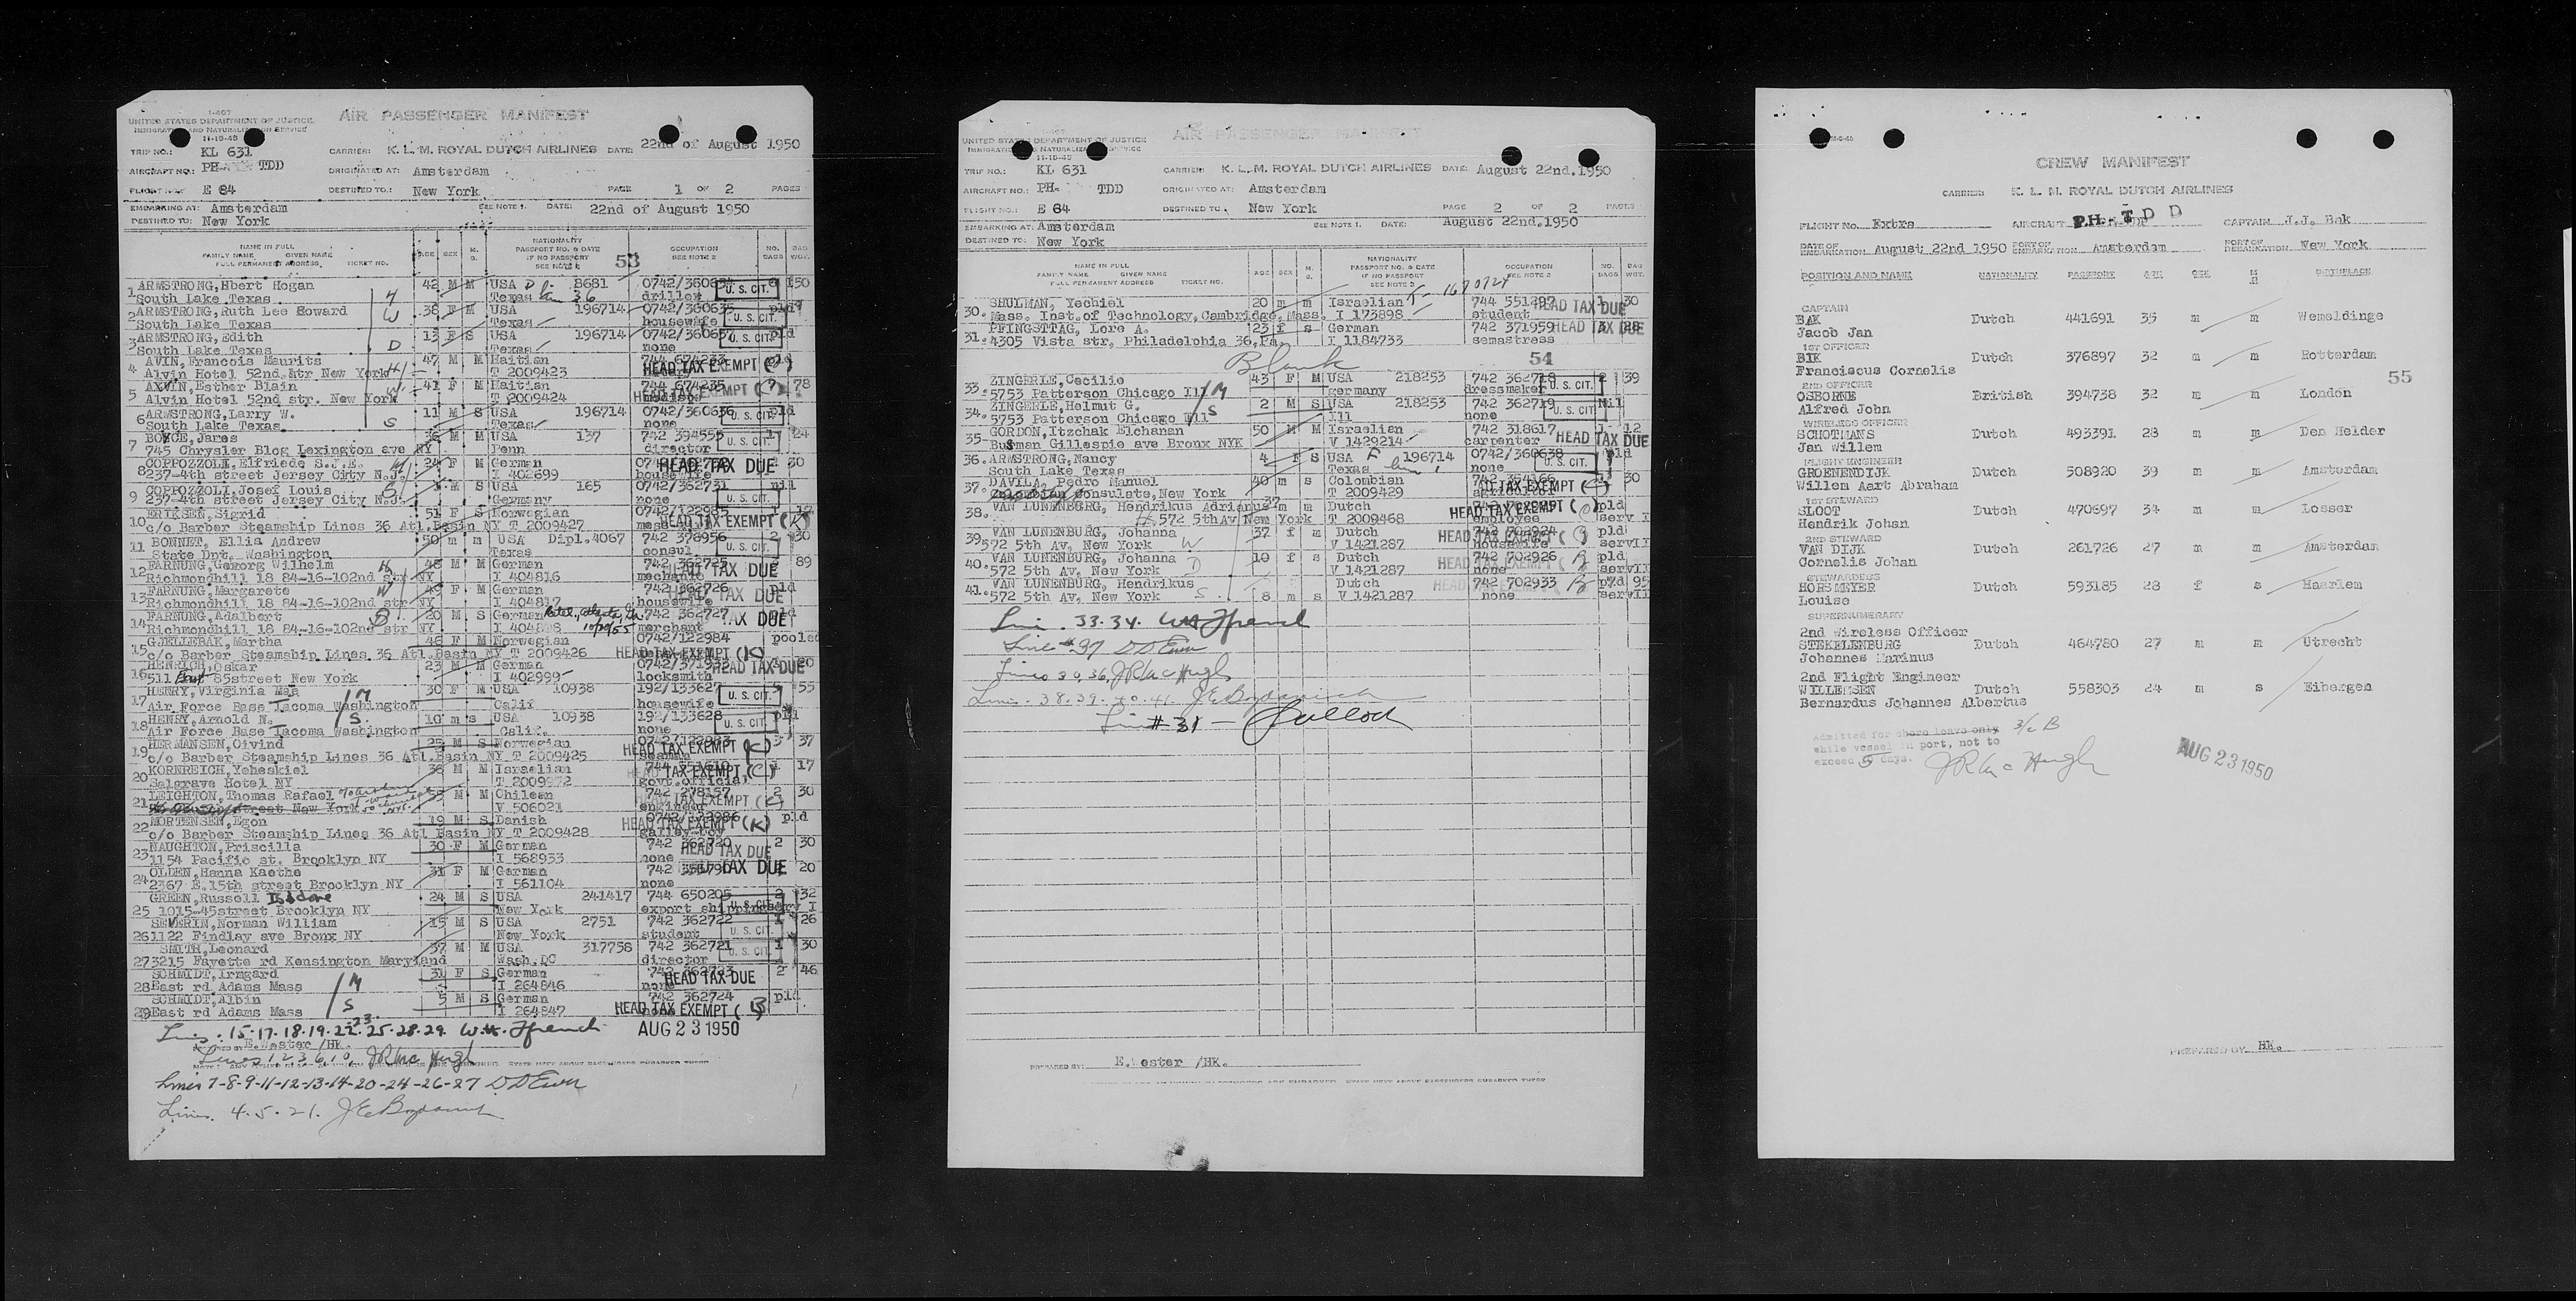 I-467
UNITED STATES DEPARTMENT OF JUSTICE
IMMIGRATION AND NATURALIZATION SERVICE
11-15-45
AIR PASSENGER MANIFEST
TRIP NO.: KL 631
CARRIER: K. L. M. ROYAL DUTCH AIRLINES DATE: 22nd of August 1950
AIRCRAFT NO.: PH- TDD
ORIGINATED AT: Amsterdam
E 84
DESTINED TO: New York PAGE 1 OF 2 PAGES
EMBARKING AT: Amsterdam SEE NOTE 1. DATE: 22nd of August 1950
DESTINED TO: New York
NAME IN FULL
FAMILY NAME GIVEN NAME
FULL PERMANENT ADDRESS TICKET NO.
AGE SEX M. S. NATIONALITY PASSPORT NO. & DATE IF NO PASSPORT SEE NOTE 53 OCCUPATION SEE NOTE 2 NO. BAGS BAG WGT.
ARMSTRONG, Hbert Hogan 42 M M USA 8681 0742/360634 150
1 South Lake Texas H Texas driller U. S. CIT.
ARMSTRONG, Ruth Lee Howard 38 F M USA 196714 0742/360635 pld
2 South Lake Texas W Texas housewife U. S. CIT.
ARMSTRONG, Edith 13 F S USA 196714 0742/360637 pld
3 South Lake Texas D Texas none U. S. CIT.
AVIN, Francois Maurits 47 M M Haitian 744 674233
4 Alvin Hotel 52nd str New York H T 2009423 HEAD TAX EXEMPT
AXVIN, Esther Blain 41 F M Haitian 744 674235 78
5 Alvin Hotel 52nd str. New York W T 2009424 EXEMPT
ARMSTRONG, Larry W. 11 M S USA 196714 0742/360636 pld
6 South Lake Texas S Texas none U. S. CIT.
BOYCE, James 36 M M USA 137 742 394555 1 24
7 745 Chrysler Blog Lexington ave NY Penn director U. S. CIT.
COPPOZZOLI, Elfriede S.J.E. 24 F M German HEAD TAX DUE 30
8 237-4th street Jersey City N.J. M I 402699 housewife
COPPOZZOLI, Josef Louis M S USA 165 0742/362731 nil
9 237-4th street Jersey City N.J. S Germany none U. S. CIT.
ERIKSEN, Sigrid 51 F S Norwegian 0742/122985
10 c/o Barber Steamship Lines 36 Atl.Basin NY T 2009427 HEAD TAX EXEMPT (K)
BONNET, Ellis Andrew 50 m m USA Dipl.4067 742 378956 2 30
11 State Dpt. Washington Texas consul U. S. CIT.
FARNUNG, Gemorg Wilhelm 48 M M German 742 362725 89
12 Richmondhill 18 84-16-102nd str NY H I 404816 mechanic TAX DUE
FARNUNG, Margarete 49 F M German 742 362726 pld
13 Richmondhill 18 84-16-102nd str NY W I 404817 housewife TAX DUE
FARNUNG, Adalbert 20 M S German 742 362727 pld
14 Richmondhill 18 84-16-102nd str NY merchant TAX DUE
GJELLEBAK, Martha 46 F M Norwegian 0742/122984 pooled
15 c/o Barber Steamship Lines 36 Atl.Basin NY T 2009426 HEAD TAX EXEMPT (K)
HENRICH, Oskar 23 M M German 0742/371932 20
16 511 85street New York I 402999 locksmith HEAD TAX DUE
HENRY, Virginia Mae 30 F M USA 10938 192/133627 55
17 Air Force Base Tacoma Washington M Calif housewife U. S. CIT.
HENRY, Arnold N. 10 m s USA 10938 192/133628 pld
18 Air Force Base Tacoma Washington S. Calif. none U. S. CIT.
HERMANSEN, Oivind 25 M S Norwegian 0742/122983 3 37
19 c/o Barber Steamship Lines 36 Atl.Basin NY T 2009425 seaman HEAD TAX EXEMPT (K)
KORNREICH, Yeheskiel 36 M M Israelian 1 17
20 Selgrave Hotel NY govt.official TAX EXEMPT
LEIGHTON, Thomas Rafael M M Chileen 742 278157 2 30
21 street New York V 506021 engineer TAX EXEMPT
MORTENSEN, Egon 19 M S Danish 0742/122986 pld
22 c/o Barber Steamship Lines 36 Atl Basin NY T 2009428 galley-boy HEAD TAX EXEMPT (K)
NAUGHTON, Priscilla 30 F M German 742 362720 2 30
23 1154 Pacific st. Brooklyn NY I 568933 none HEAD TAX DUE
OLDEN, Hanna Kaethe 31 F M German 742 TAX DUE 20
24 2367 E.15th street Brooklyn NY I 561104 none
GREEN, Russell Isidore 24 M S USA 241417 744 650205 2 32
25 1015-45street Brooklyn NY New York export shipping U. S. CIT.
SEVERIN, Norman William 15 M S USA 2751 742 362722 1 26
26 1122 Findlay ave Bronx NY New York student U. S. CIT.
SMITH, Leonard 37 M M USA 317758 742 362721 1 30
27 3215 Fayette rd Kensington Maryland Wash.DC director U. S. CIT.
SCHMIDT, Irmgard 31 F S German 742 362723 2 46
28 East rd Adams Mass M I 264846 none HEAD TAX DUE
SCHMIDT, Albin 5 M S German 742 362724 pld
29 East rd Adams Mass S I 264847 HEAD TAX EXEMPT (B)
Lines 15-17-18-19-22-23-25-28-29 W.H. Ffrench AUG 23 1950
E.Wester /HK.
Lines 1,2,3,6,10, JR McHugh
Lines 7-8-9-11-12-13-14-20-24-26-27 DD Ewen
Lines 4-5-21.
UNITED STATES DEPARTMENT OF JUSTICE
11-15-45
AIR PASSENGER MANIFEST
TRIP NO.: KL 631
CARRIER: K. L. M. ROYAL DUTCH AIRLINES DATE: August 22nd.1950
AIRCRAFT NO.: PH- TDD
ORIGINATED AT: Amsterdam
FLIGHT NO.: E 84
DESTINED TO: New York PAGE 2 OF 2 PAGES
EMBARKING AT: Amsterdam SEE NOTE 1. DATE: August 22nd.1950
DESTINED TO: New York
NAME IN FULL
FAMILY NAME GIVEN NAME
FULL PERMANENT ADDRESS TICKET NO.
AGE SEX M. S. NATIONALITY PASSPORT NO. & DATE IF NO PASSPORT SEE NOTE 2 OCCUPATION SEE NOTE 2 NO. BAGS BAG WGT.
SHULMAN, Yechiel 20 m m Israelian T-1670724 744 551297 30
30. Mass. Inst.of Technology, Cambridge, Mass. I 173898 student HEAD TAX DUE
PFINGSTTAG, Lore A. 23 f s German 742 371959 28
31. 4305 Vista str, Philadelphia 36, Pa. I 1184733 semastress HEAD TAX DUE
Blank 54
ZINGERLE, Cecilie 43 F M USA 218253 742 362718 2 39
33. 5753 Patterson Chicago Ill M germany dressmaker U. S. CIT.
ZINGERLE, Helmut G. 2 M S USA 218253 742 362719 Nil
34. 5753 Patterson Chicago Ill S Ill none U. S. CIT.
GORDON, Itzchak Elchanan 50 M M Israelian 742 318617 1 12
35- Gillespie ave Bronx NYK V 1429214 carpenter HEAD TAX DUE
36. ARMSTRONG, Nancy 4 F S USA 196714 0742/360638 pld
South Lake Texas Texas none U. S. CIT.
DAVILA, Pedro Manuel 40 m s Colombian 742 1 30
37. Colombian Consulate, New York T 2009429 TAX EXEMPT
VAN LUNENBURG, Hendrikus Adrianus 37 m m Dutch pld
38. 572 5thAv New York T 2009468 employee HEAD TAX EXEMPT
VAN LUNENBURG, Johanna 37 f m Dutch 742 702924 pld
39. 572 5th Av. New York W V 1421287 housewife HEAD TAX EXEMPT
VAN LUNENBURG, Johanna 10 f s Dutch 742 702926 pld
40. 572 5th Av. New York D V 1421287 none HEAD TAX EXEMPT
VAN LUNENBURG, Hendrikus Dutch 742 702933 95
41. 572 5th Av, New York S 8 m s V 1421287 none HEAD TAX EXEMPT
Line . 33.34. WH Ffrench
Line # 37 DD Ewen
Lines 30, 36, JR McHugh
Lines . 38.39.40.41.
Line # 31 -
PREPARED BY: E.Wester /HK.
CREW MANIFEST
CARRIER: K. L. M. ROYAL DUTCH AIRLINES
FLIGHT No. Extra AIRCRAFT PH-TDD CAPTAIN J.J. Bak
DATE OF EMBARKATION August 22nd 1950 PORT OF EMBARKATION Amsterdam PORT OF DEBARKATION New York
POSITION AND NAME NATIONALITY PASSPORT AGE SEX M S BIRTHPLACE
CAPTAIN
BAK Dutch 441691 35 m m Wemeldinge
Jacob Jan
1ST OFFICER
BIK Dutch 376897 32 m m Rotterdam
Franciscus Cornelis
55
2ND OFFICER
OSBORNE British 394738 32 m m London
Alfred John
WIRELESS OFFICER
SCHOTMANS Dutch 493391 28 m m Den Helder
Jan Willem
FLIGHT ENGINEER
GROENENDIJK Dutch 508920 39 m m Amsterdam
Willem Aart Abraham
1ST STEWARD
SLOOT Dutch 470697 34 m m Losser
Hendrik Johan
2ND STEWARD
VAN DIJK Dutch 261726 27 m m Amsterdam
Cornelis Johan
STEWARDESS
HORSMEYER Dutch 593185 28 f s Haarlem
Louise
SUPERNUMERARY
2nd Wireless Officer
STEKELENBURG Dutch 464780 27 m m Utrecht
Johannes Marinus
2nd Flight Engineer
WILLEMSEN Dutch 558303 24 m s Eibergen
Bernardus Johannes Albertus
Admitted for shore leave only 3/c B
while vessel in port, not to
exceed 5 days. JR McHugh
AUG 23 1950
PREPARED BY HK.